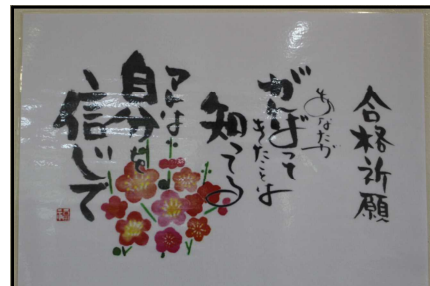 合格祈願
あなたが
がんばって
きたことは
知ってる
アとは
自分を
信じて